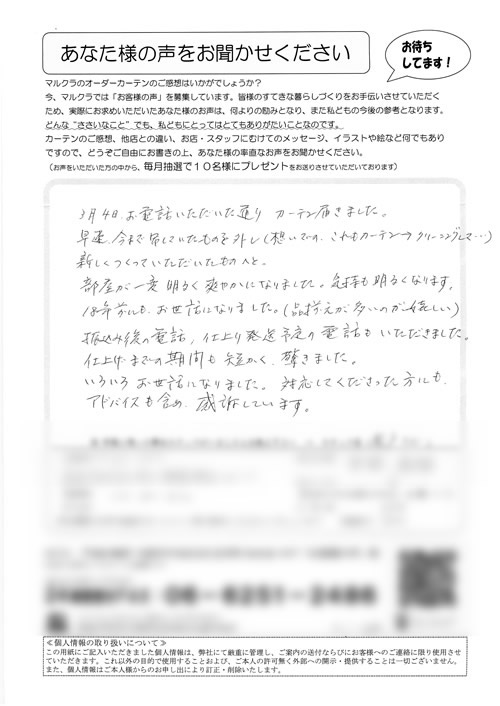 あなた様の声をお聞かせください
お待ち
してます！
マルクラのオーダーカーテンのご感想はいかがでしょうか？
今、マルクラでは「お客様の声」を募集しています。皆様のすてきな暮らしづくりをお手伝いさせていただく
ため、実際にお求めいただいたあなた様のお声は、何よりの励みとなり、また私どもの今後の参考となります。
どんな“ささいなこと”でも、私どもにとってはとてもありがたいことなのです。
カーテンのご感想、他店との違い、お店・スタッフにむけてのメッセージ、イラストや絵など何でもあり
ですので、どうぞご自由にお書きの上、あなた様の率直なお声をお聞かせください。
（お声をいただいた方の中から、毎月抽選で１０名様にプレゼントをお送りさせていただいております）
3月4日、お電話いただいた通り カーテン届きました。
早速、今まで吊していたものを外し（想いでの、これもカーテン→クリーニングして…）
新しくつくっていただいたものへと。
部屋が一変 明るく爽やかになりました。気持も明るくなります。
18年前にも、お世話になりました。（品揃えが多いのが嬉しい）
振込み後の電話、仕上り発送予定の電話もいただきました。
仕上げまでの期間も短かく、驚きました。
いろいろお世話になりました。対応してくださった方にも、
アドバイスも含め、感謝しています。
06-6251-2486
≪個人情報の取り扱いについて≫
この用紙にご記入いただきました個人情報は、弊社にて厳重に管理し、ご案内の送付ならびにお客様へのご連絡に限り使用させ
ていただきます。これ以外の目的で使用することおよび、ご本人の許可無く外部への開示・提供することは一切ございません。
また、個人情報はご本人様からのお申し出により訂正・削除いたします。